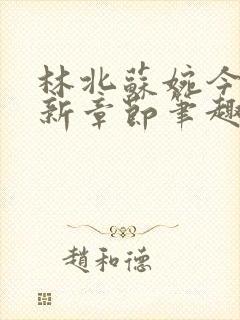 林北蘇婉今
新章節筆趣
趙和德